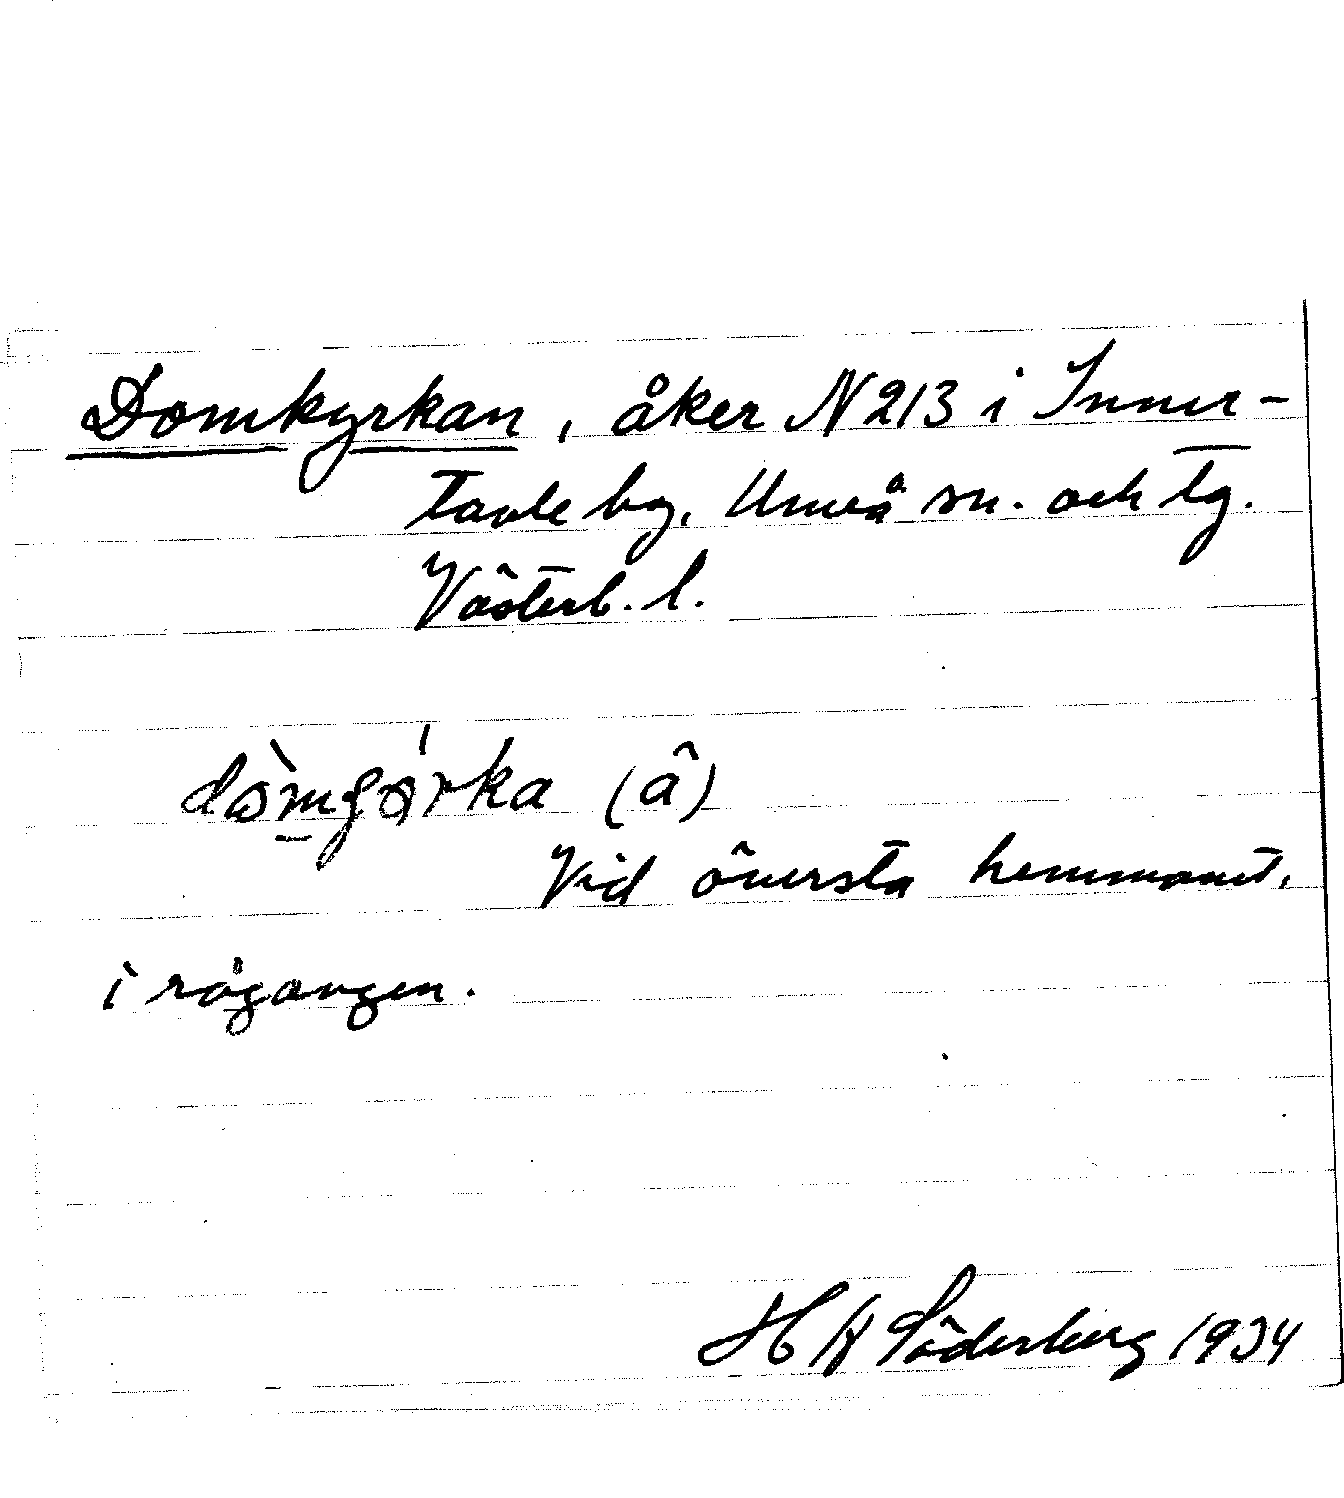 Domkyrkan, åker N 213 i Inner-
tavle by, Umeå sn. och tg.
Västerb. l.
(â)
Vid översta hemmanet,
i rågangen.
H Söderberg 1934